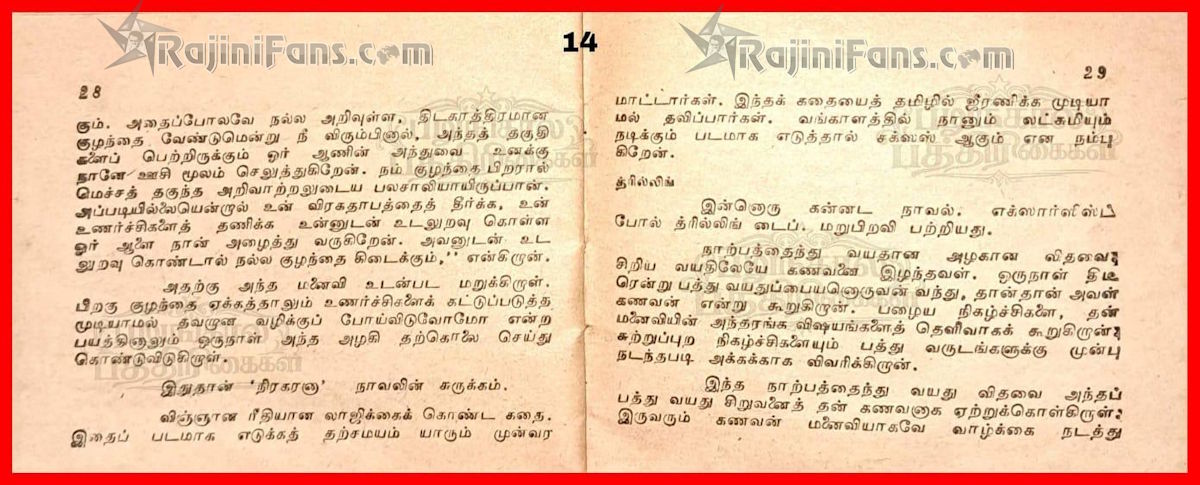 RajiniFans.com
14
RajiniFans.com
28
கும். அதைப்போலவே நல்ல அறிவுள்ள, திடகாத்திரமான
குழந்தை வேண்டுமென்று நீ விரும்பினால், அந்தத் தகுதி
களைப் பெற்றிருக்கும் ஓர் ஆணின் அந்துவை உனக்கு
நானே ஊசி மூலம் செலுத்துகிறேன். நம் குழந்தை பிறரால்
மெச்சத் தகுந்த அறிவாற்றலுடைய பலசாலியாயிருப்பான்.
அப்படியில்லையென்றால் உன் விரகதாபத்தைத் தீர்க்க, உன்
உணர்ச்சிகளைத் தணிக்க உன்னுடன் உடலுறவு கொள்ள
ஓர் ஆளை நான் அழைத்து வருகிறேன். அவனுடன் உட
லுறவு கொண்டால் நல்ல குழந்தை கிடைக்கும்,'' என்கிறான்.
அதற்கு அந்த மனைவி உடன்பட மறுக்கிறாள்.
பிறகு குழந்தை ஏக்கத்தாலும் உணர்ச்சிகளைக் கட்டுப்படுத்த
முடியாமல் தவறான வழிக்குப் போய்விடுவோமோ என்ற
பயத்தினாலும் ஒருநாள் அந்த அழகி தற்கொலை செய்து
கொண்டுவிடுகிறாள்.
இதுதான் 'நிரகரனா' நாவலின் சுருக்கம்.
விஞ்ஞான ரீதியான லாஜிக்கைக் கொண்ட கதை.
இதைப் படமாக எடுக்கத் தற்சமயம் யாரும் முன்வர
29
மாட்டார்கள். இந்தக் கதையைத் தமிழில் ஜீரணிக்க முடியா
மல் தவிப்பார்கள். வங்காளத்தில் நானும் லட்சுமியும்
நடிக்கும் படமாக எடுத்தால் சக்ஸஸ் ஆகும் என நம்பு
கிறேன்.
த்ரில்லிங்
இன்னொரு கன்னட நாவல். எக்ஸார்ஸிஸ்ட்
போல் த்ரில்லிங் டைப். மறுபிறவி பற்றியது.
நாற்பத்தைந்து வயதான அழகான விதவை,
சிறிய வயதிலேயே கணவனை இழந்தவள். ஒருநாள் திடீ
ரென்று பத்து வயதுப்பையனொருவன் வந்து, தான்தான் அவள்
கணவன் என்று கூறுகிறான். பழைய நிகழ்ச்சிகளை, தன்
மனைவியின் அந்தரங்க விஷயங்களைத் தெளிவாகக் கூறுகிறான்,
சுற்றுப்புற நிகழ்ச்சிகளையும் பத்து வருடங்களுக்கு முன்பு
நடந்தபடி அக்கக்காக விவரிக்கிறான்.
இந்த நாற்பத்தைந்து வயது விதவை அந்தப்
பத்து வயது சிறுவனைத் தன் கணவனாக ஏற்றுக்கொள்கிறாள்.
இருவரும் கணவன் மனைவியாகவே வாழ்க்கை நடத்து